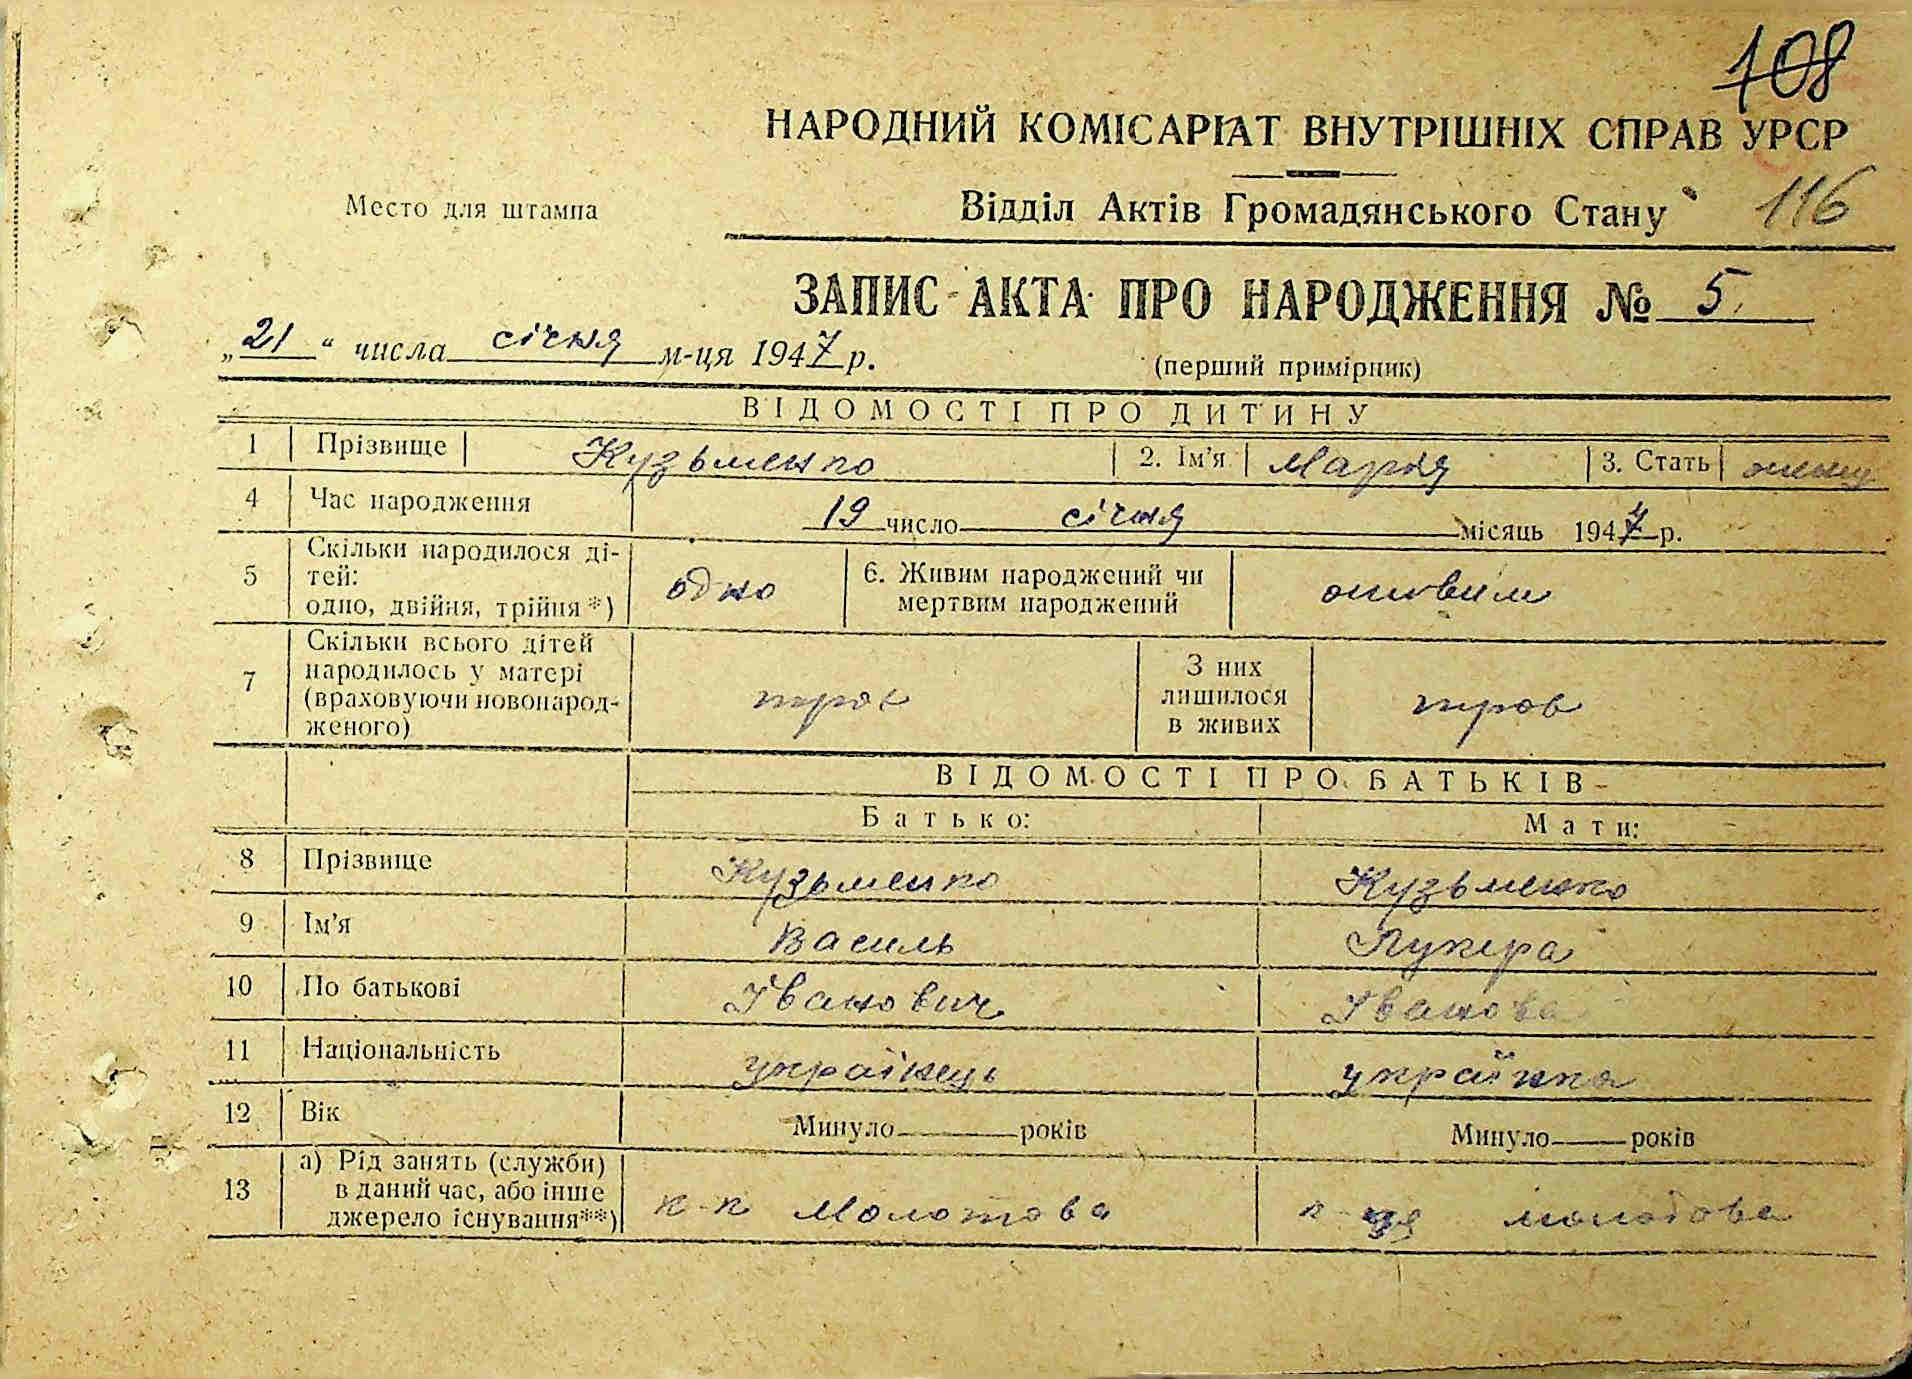 108
НАРОДНИЙ КОМІСАРІАТ ВНУТРІШНІХ СПРАВ УРСР
Место для штампа
Відділ Актів Громадянського Стану 116
ЗАПИС АКТА ПРО НАРОДЖЕННЯ № 5
„21“ числа січня м-ця 1947 р.
(перший примірник)
ВІДОМОСТІ ПРО ДИТИНУ
1 Прізвище Кузьменко 2. Ім'я Марія 3. Стать
4 Час народження 19 число січня місяць 1947 р.
5 Скільки народилося ді-
тей:
одно, двійня, трійня*) одно 6. Живим народжений чи
мертвим народжений живим
7 Скільки всього дітей
народилось у матері
(враховуючи новонарод-
женого) троє З них
лишилося
в живих троє
ВІДОМОСТІ ПРО БАТЬКІВ
Батько: Мати:
8 Прізвище Кузьменко Кузьменко
9 Ім'я Василь
10 По батькові Іванович Іванова
11 Національність українець українка
12 Вік Минуло роках Минуло років
13 а) Рід занять (служби)
в даний час, або інше
джерело існування**) к-п Молотова молотова